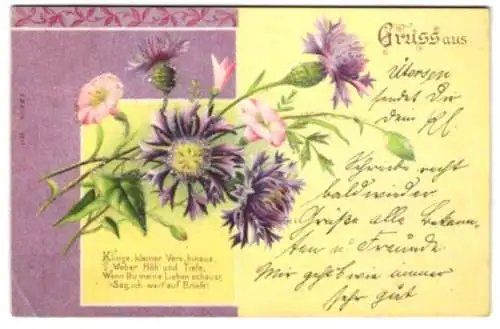 Gruss aus
Ütersen
sendet Dir
dein Kl.
Schreibe recht
bald wieder
Grüße alle Bekann-
ten u Freunde.
Mir geht's wie immer
sehr gut
Klinge, kleiner Vers, hinaus,
Ueber Höh' und Tiefe,
Wenn Du meine Lieben schaust,
Sag, ich wart' auf Briefe!